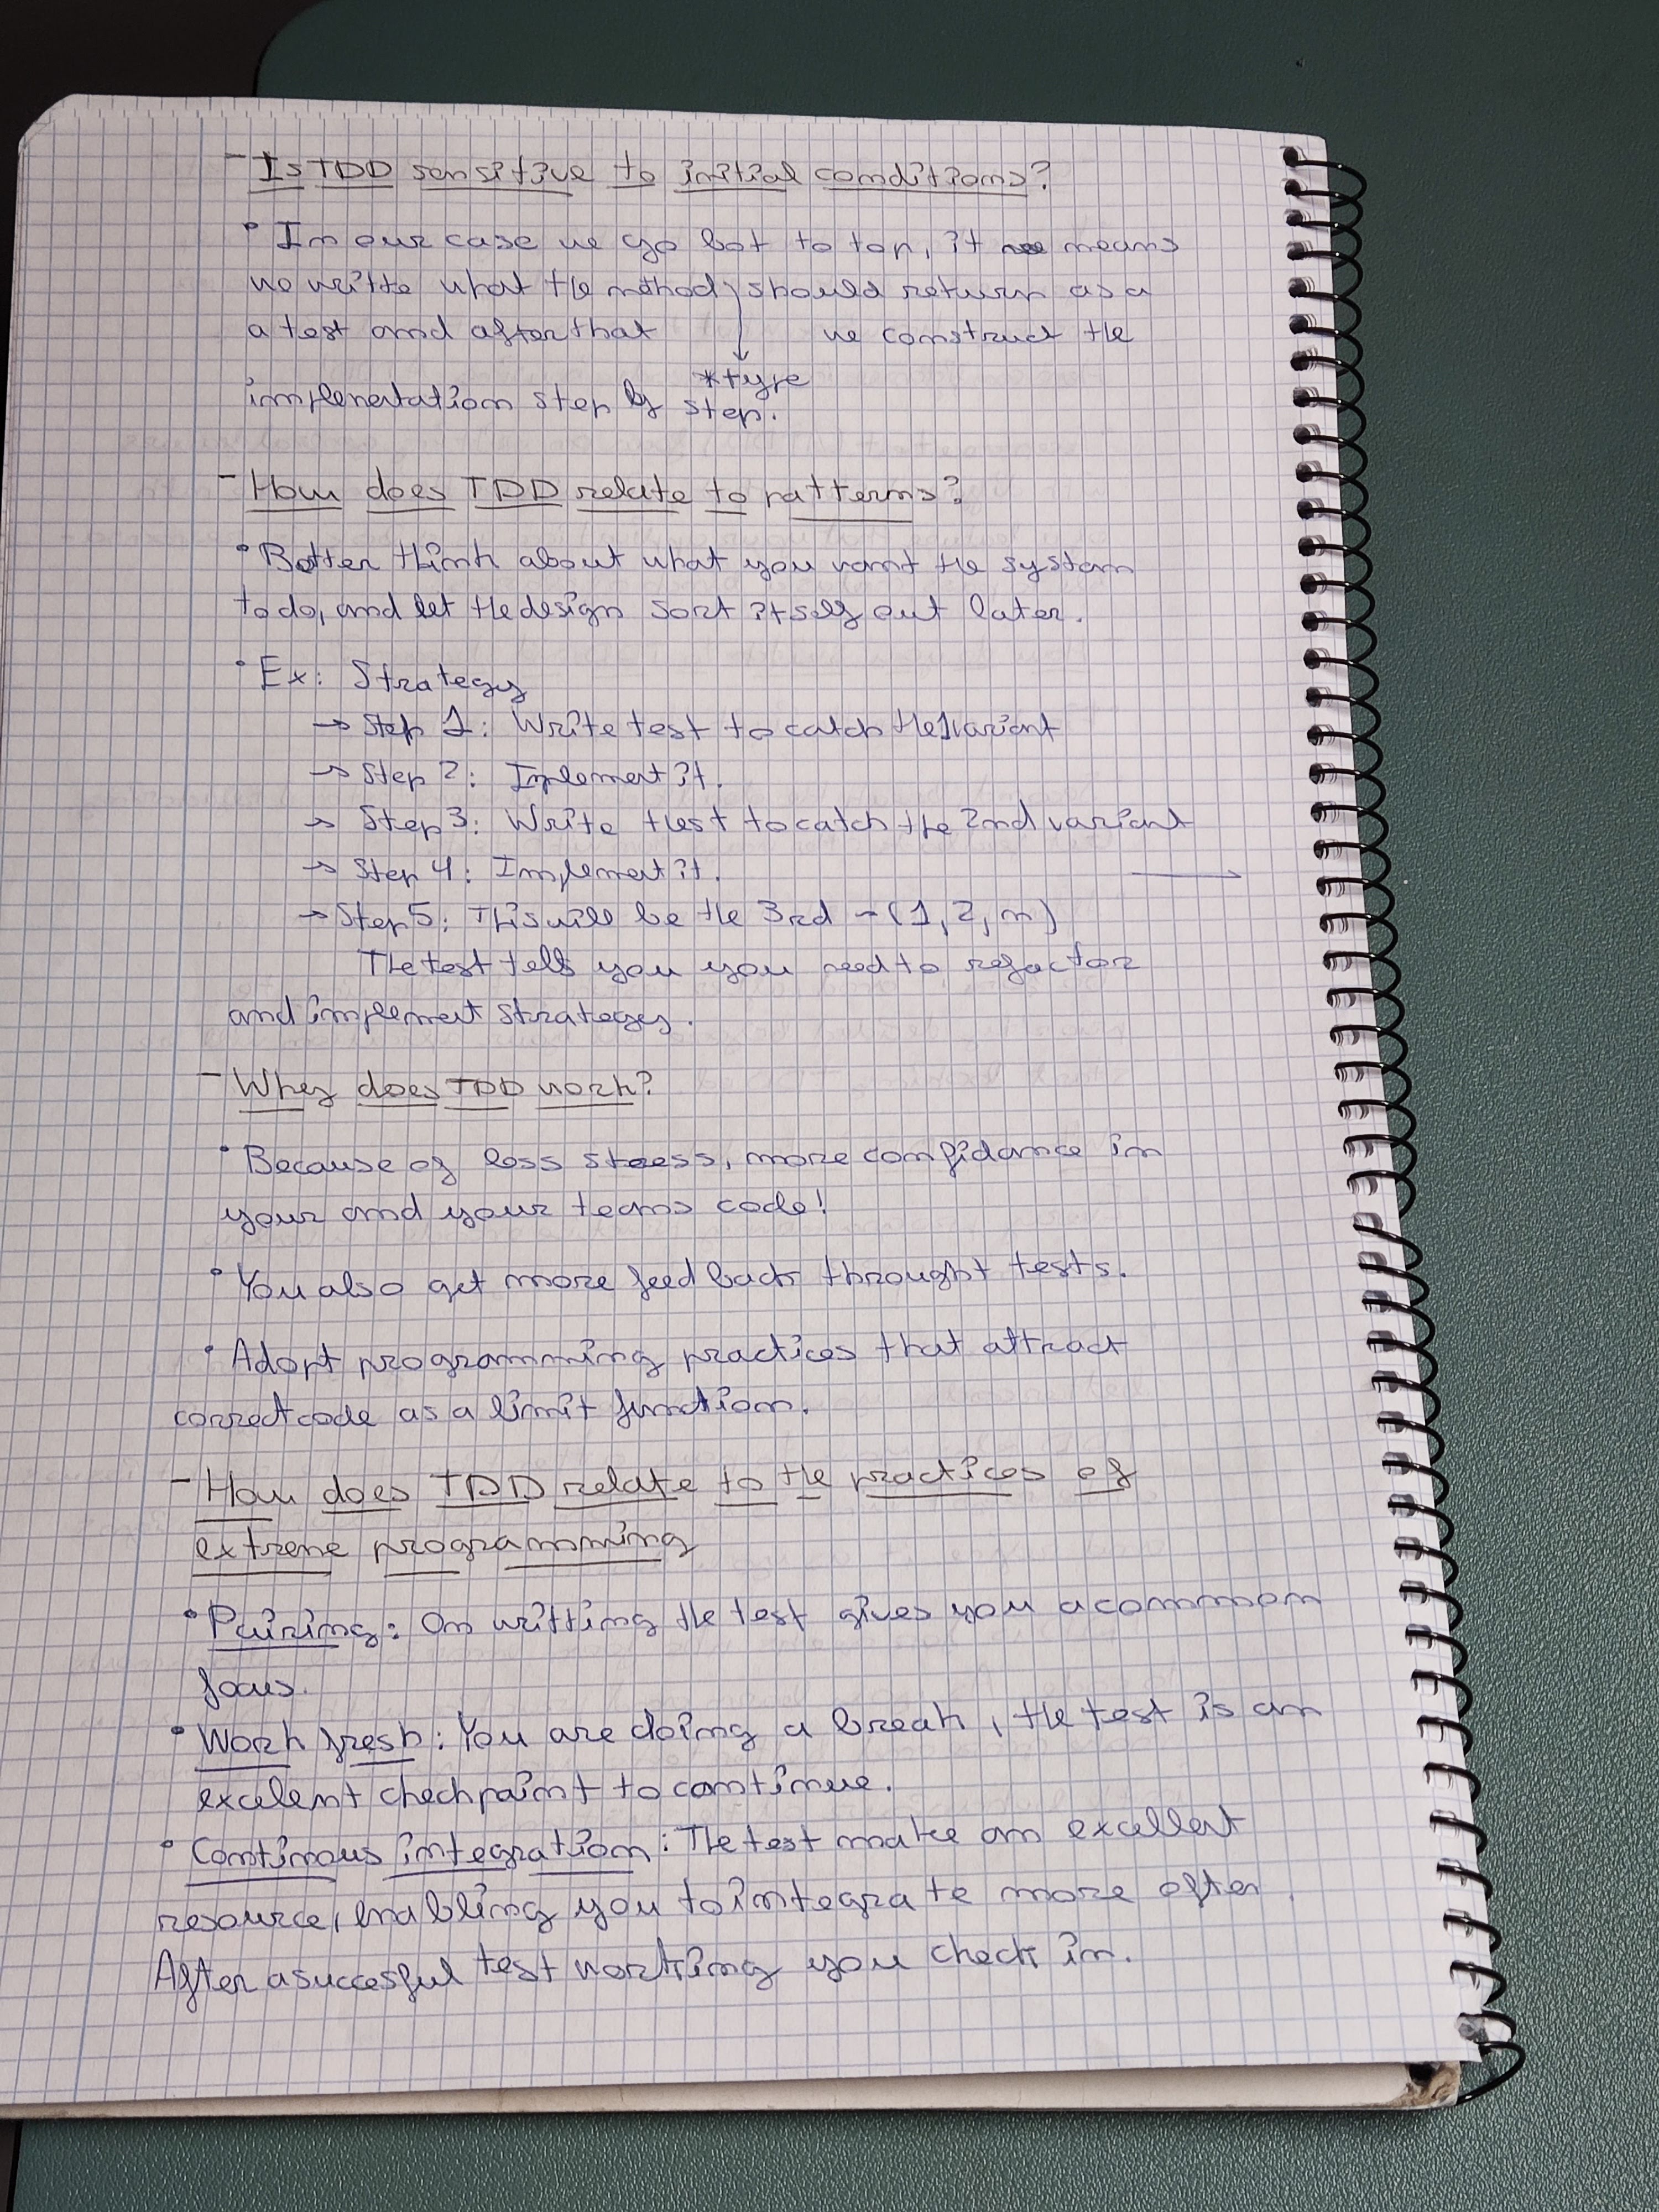 - Is TDD sensitive to initial conditions?
• In our case we go bot to top, it means
we writte what the method should return as a
a test and after that we construct the
*type
implementation step by step.
- How does TDD relate to patterns?
• Better think about what you want the system
to do, and let the design sort itself out later.
• Ex: Strategy
→ Step 1: Write test to catch the 1 variant
→ Step 2: Implement it.
→ Step 3: Write test to catch the 2nd variant
→ Step 4: Implement it.
→ Step 5: This will be the 3rd - (1, 2, n)
The test tells you you need to refactor
and implement strategy.
- Why does TDD work?
• Because of less stress, more confidance in
your and your teams code!
• You also get more feedback throught tests.
• Adopt programming practices that attract
correct code as a limit function.
- How does TDD relate to the practices of
extreme programming
• Pairing: On writting the test gives you a common
focus.
• Work fresh: You are doing a break, the test is an
excelent checkpoint to continue.
• Continous integration: The test make an excellent
resource, enabling you to integrate more often.
After a succesful test working you check in.